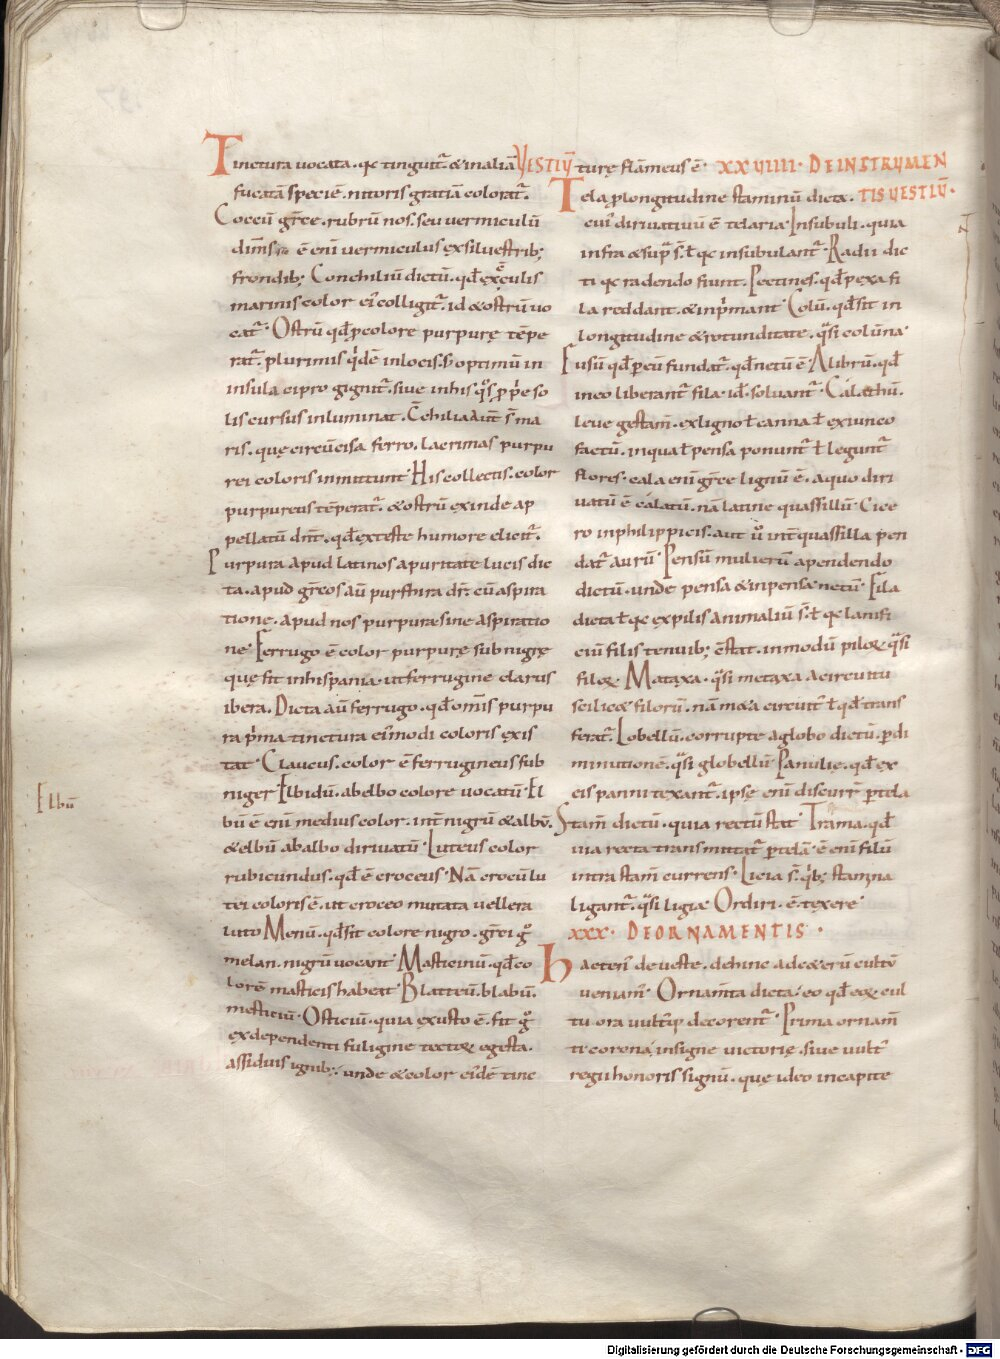 Tinctura uocata· qꝫ tinguit᷑· & in aliā VESTIŪ
fucatā speciē· nitoris gratiā colorat᷑·
Coccū gr̄ce· rubrū nos· seu uermiculū
dim̄s· ē enī uermiculus exsiluestrib;
frondib; Conchiliū dictū· qđ exculis
marinis color ei᷑ colligit᷑· id & ostrū uo
cat᷑· Ostrū qđ p colore purpurę tēpe
rat᷑· plurimis qidē in locis· s; optimū in
insula cipro gignit᷑· siue in his qos ppe so
lis cursus inluminat· Cc̄hilia aut̄ s̄ ma
ris· quę circūcisa ferro· lacrimas purpu
rei coloris inmittunt· His collectis· color
purpureus tēperat᷑· & ostrū exinde ap
pellatū dnt̄· qđ ex teste humore elicit᷑·
Purpura apud latinos a puritate lucis dic
ta· apud gr̄cos aū purfhira dr̄· cū aspira
tione· apud nos purpura sine aspiratio
ne· Ferrugo ē color purpurę subnigrę
quę fit in hispania· ut ferrugine clarus
ibera· Dicta aū ferrugo· qđ om̄is purpu
ra pima tinctura ei᷑modi coloris exis
tat· Claucus· color ē ferrugineus sub
niger· Elbidū· ab elbo colore uocatū· El
bū ē enī medius color· int᷑ nigrū & albū·
& elbū ab albo diriuatū· Luteus color
rubicundus· qđ ē croceus· Nā crocū lu
tei coloris ē· ut croceo mutata uellera
luto· Menū· qđ sit colore nigro· gr̄ci g̊
melan· nigrū uocant· Masticinū· qđ co
lorē masticis habeat· Blatteū· blabū·
mesticiū· Osticiū· quia ex usto ē· fit g̊
ex dependenti fuligine tectoꝝ egesta·
assiduis ignib;· unde & color ei᷑dē tinc
Elbū
turę flāmeus ē· XXVIIII· DE INSTRUMEN
Tela p longitudine staminū dicta· TIS VESTIŪ·
cui᷑ diriuatiuū ē telaria· Insubuli· quia
infra & sup̄ s̄· ł qꝫ insubulant᷑· Radii dic
ti qꝫ radendo fiunt· Pectines· qđ pexa fi
la reddant· & inpimant· Colū· qđ sit in
longitudine & rotunditate· qsi colūna·
Fusū qđ p eū fundat᷑· qđ netū ē· Alibrū· qđ
in eo liberant᷑ fila· id· soluant᷑· Calathū·
leue gestam̄· ex ligno ł canna ł ex iunco
factū· in qua ł pensa ponunt᷑ ł legunt᷑
flores· cala enī gr̄ce lignū ē· a quo diri
uatū ē calatū· nā latine quassillū· Cice
ro in philippicis· aut uo int᷑ quassilla pen
dat᷑ aurū· Pensū mulierū a pendendo
dictū· unde pensa & inpensa· netū· Fila
dicta ł qꝫ ex pilis animaliū s̄· ł qꝫ lanifi
ciū filis tenuib; c̄stat· in modū piloꝝ qsi
filoꝝ· Mataxa· qsi metaxa a circuitu
scilic& filorū· nā m&a circuit᷑ ł qđ trans
ferat᷑· Lobellū· corrupte a globo dictū· p di
minutionē· qsi globellū· Panulię· qđ ex
eis panni texant᷑· ipsę enī discurr̄ p tela
Stam̄ dictū· quia rectū stat· Trama· qđ
uia recta transmittat᷑ p telā· ē enī filū
intra stam̄ currens· Licia s̄· qib; stamna
ligant᷑· qsi ligia· Ordiri· ē· texere·
XXX· DE ORNAMENTIS·
Hacten᷑ de ueste· dehinc ad c&erū cultū
ueniam᷑· Ornam̄ta dicta· eo qđ eoꝝ cul
tu ora uultusq decorent᷑· Prima ornam̄
ti corona· insigne uictorię· siue uult᷑
regii honoris signū· quę ideo in capite
Digitalisierung gefördert durch die Deutsche Forschungsgemeinschaft - DFG